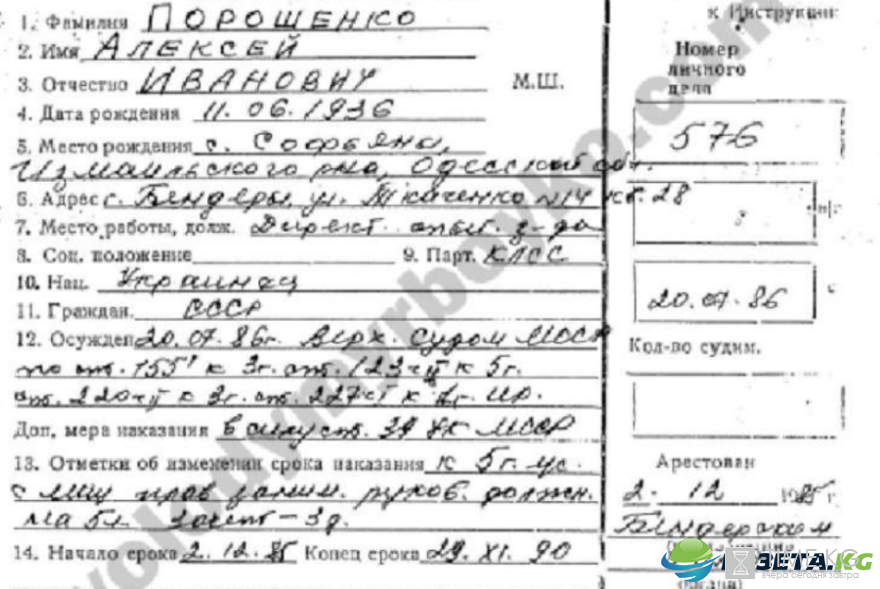 1. Фамилия ПОРОШЕНКО
2. Имя АЛЕКСЕЙ
3. Отчество ИВАНОВИЧ М.Ш.
4. Дата рождения 11.06.1936
5. Место рождения с. Софьяны,
Измаильского р-на, Одесской обл.
6. Адрес г. Бендеры, ул. Ткаченко №14 кв. 28
7. Место работы, долж. Директ. опыт. з-да
8. Соц. положение 9. Парт. КПСС
10. Нац. Украинец
11. Граждан. СССР
12. Осужден 20.07.86г. Верх. Судом МССР
по ст. 155' к 3г. ст. 123 ч II к 5г.
ст. 220 ч II к 3г. ст. 227 ч I к 2г.
Доп. мера наказания В силу ст. 39 УК МССР
13. Отметки об изменении срока наказания к 5г. ус.
с лиш прав заним. руков. должн.
на 5л. Зачет – 3д.
14. Начало срока 2.12.85 Конец срока 29.XI.90
к Инструкции
Номер
личного
дела
576
20.07.86
Кол-во судим.
Арестован
2. 12 1985 г.
Бендерским
GAZETA.KG
вчера сегодня завтра
vokodymyrboyko.com